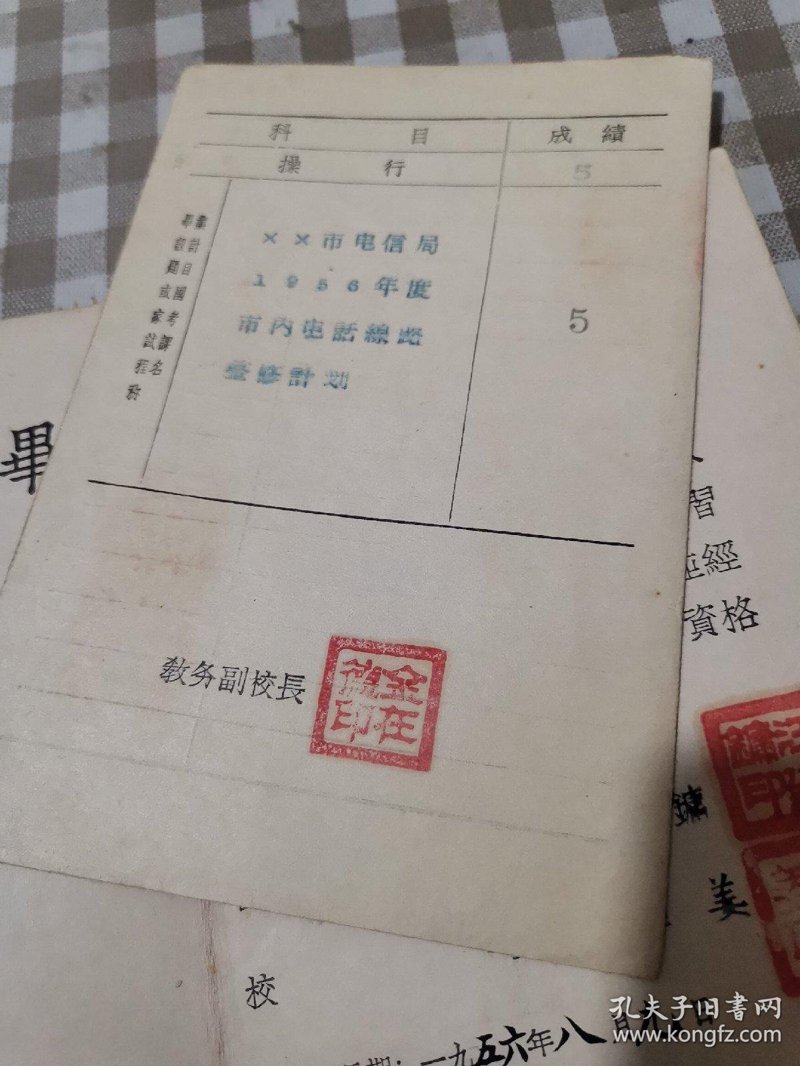 科 目 成績
操 行 5
畢業設計題目或國家考試課程名称
××市电信局
1956年度
市内电話線路
登修計划
5
教务副校長
金在
印
畢
習
經
資格
鏞
印
姜
校
期：一九五六年八月
孔夫子旧书网
www.kongfz.com